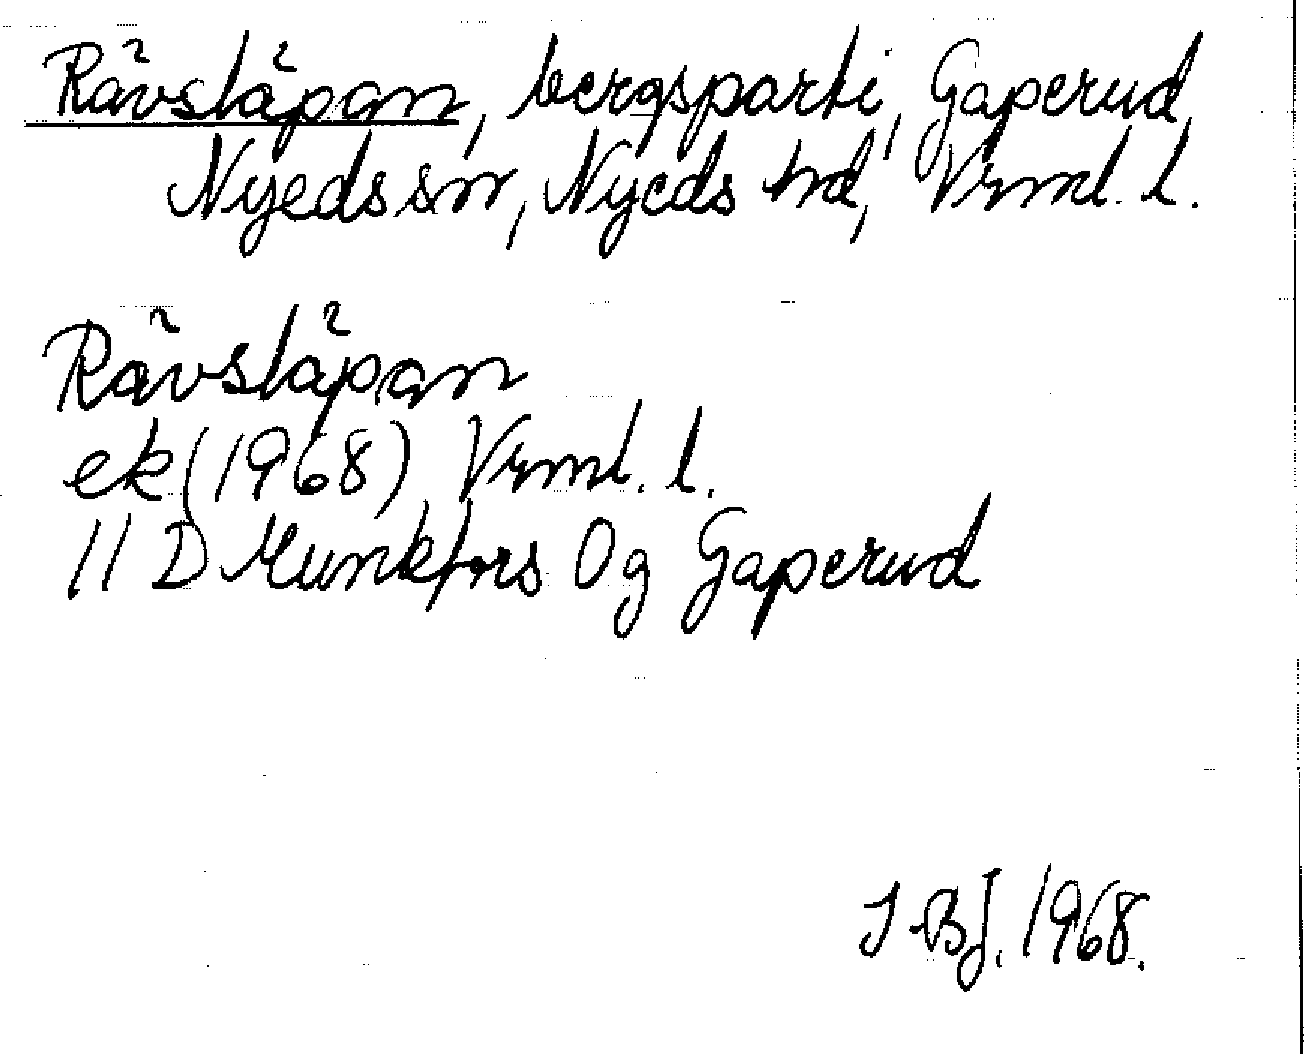 Rävsläpan, bergsparti, Gaperud,
Nyeds sn, Nyeds hd, Vrml. l.
Rävsläpan
ek (1968) Vrml. l.
11 D Munkfors 0g Gaperud
I BJ. 1968.